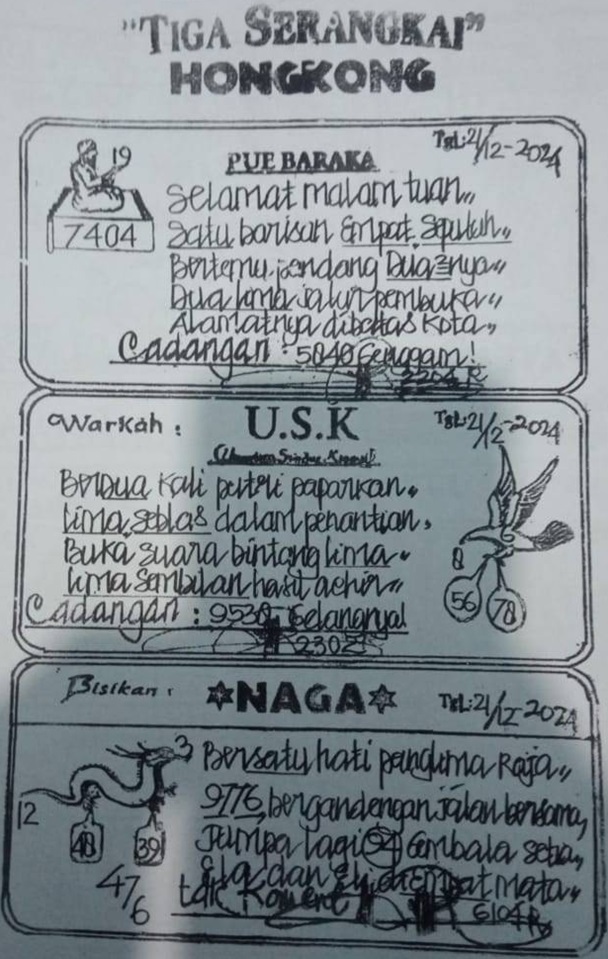 "TIGA SERANGKAI"
HONGKONG
Tgl: 21/12-2024
19
PUE BARAKA
7404
Selamat malam tuan,,
Satu barisan Empat. Sepuluh,,
Bertemu pendang Dua2nya,,
Dua lima jalur pembuka,,
Alamatnya dibatas kota,,
Cadangan : 5040 Genggam!
Warkah :
U.S.K
Tgl: 21/12-2024
Berdua kali puteri paparkan,,
lima seblas dalam penantian,
Buka suara bintang lima,,
lima sembilan hasil achir,,
8
56
78
Cadangan : 9530 Gelangnya!
2302
Bisikan :
NAGA
Tgl: 21/12-2024
3
Bersatu hati panglima Raja,,
12
9776, bergandengan jalan bersama,
48
39
Jumpa lagi 94 Gembala setia,
dan mata,,
47/6
tak
6104 R